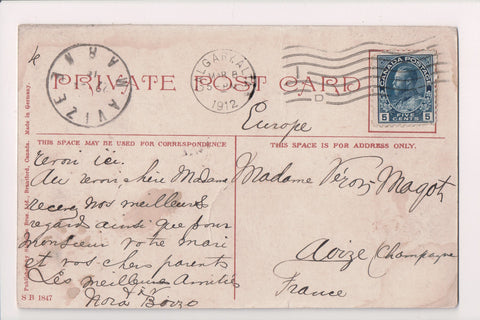 AVIZE
MAR
CALGARY, ALTA
MAR 8
1912
CANADA POSTAGE
5 FIVE CENTS 5
D
PRIVATE POST CARD
Europe
THIS SPACE MAY BE USED FOR CORRESPONDENCE
THIS SPACE IS FOR ADDRESS ONLY.
ici.
Au revoir, chère Madame
recevez nos meilleurs
regards ainsi que pour
Monsieur votre mari
et vos chers parents
Les meilleures Amitiés
Nora
Madame Magot
Avize Champagne
France
Brantford, Canada. Made in Germany.
S B 1847